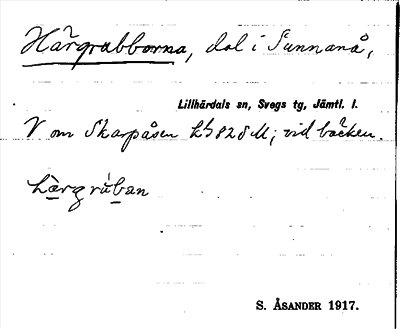 Härgrubborna, dal i Sunnanå,
Lillhärdals sn, Svegs tg, Jämtl. l.
V om Skarpåsen kb 828 M; vid bäcken.
hàrgrúban
S. ÅSANDER 1917.